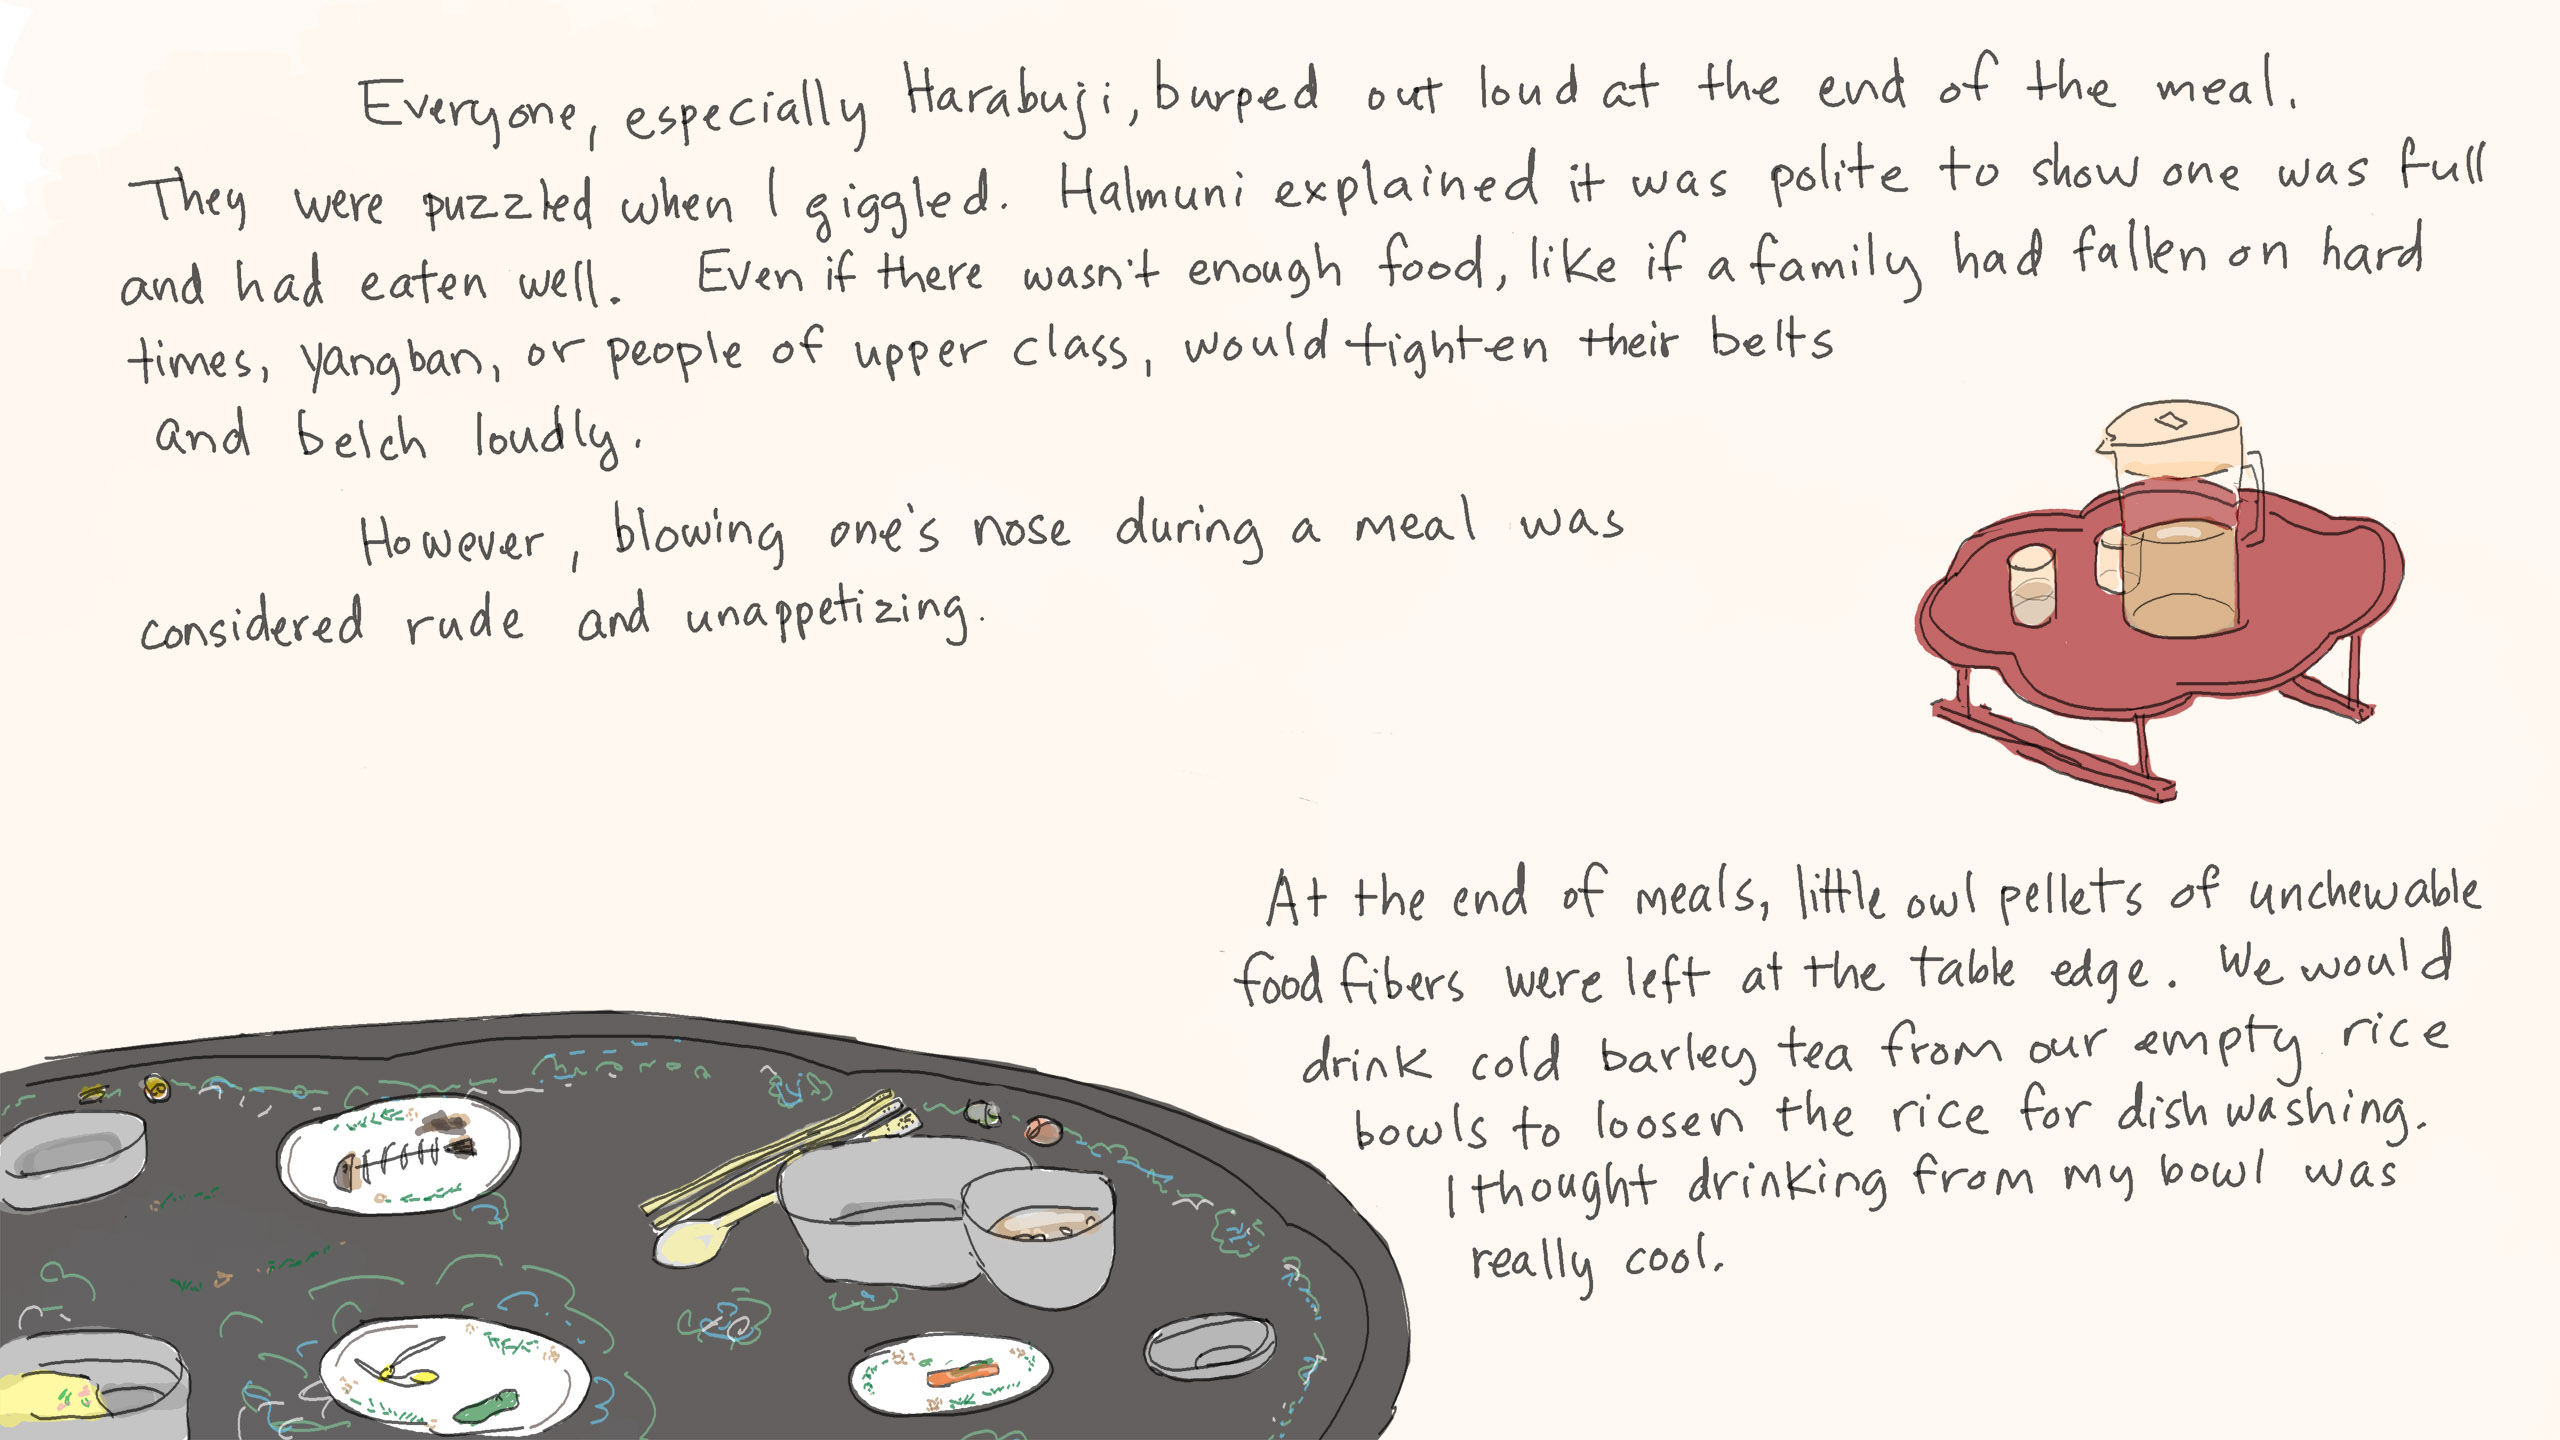 Everyone, especially Harabuji, burped out loud at the end of the meal.
They were puzzled when I giggled. Halmuni explained it was polite to show one was full
and had eaten well. Even if there wasn't enough food, like if a family had fallen on hard
times, yangban, or people of upper class, would tighten their belts
and belch loudly.
However, blowing one's nose during a meal was
considered rude and unappetizing.
At the end of meals, little owl pellets of unchewable
food fibers were left at the table edge. We would
drink cold barley tea from our empty rice
bowls to loosen the rice for dish washing.
I thought drinking from my bowl was
really cool.